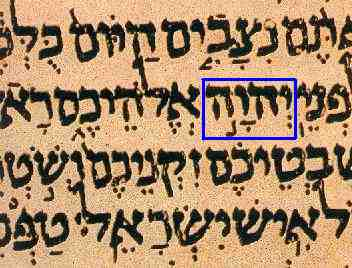 אַתֶּם נִצָּבִים הַיּוֹם כֻּלְּ
פְנֵי יְהוָה אֱלֹהֵיכֶם רָא
שִׁבְטֵיכֶם זִקְנֵיכֶם וְשֹׁטְ
ל אִישׁ יִשְׂרָאֵל טַפְּכֶ